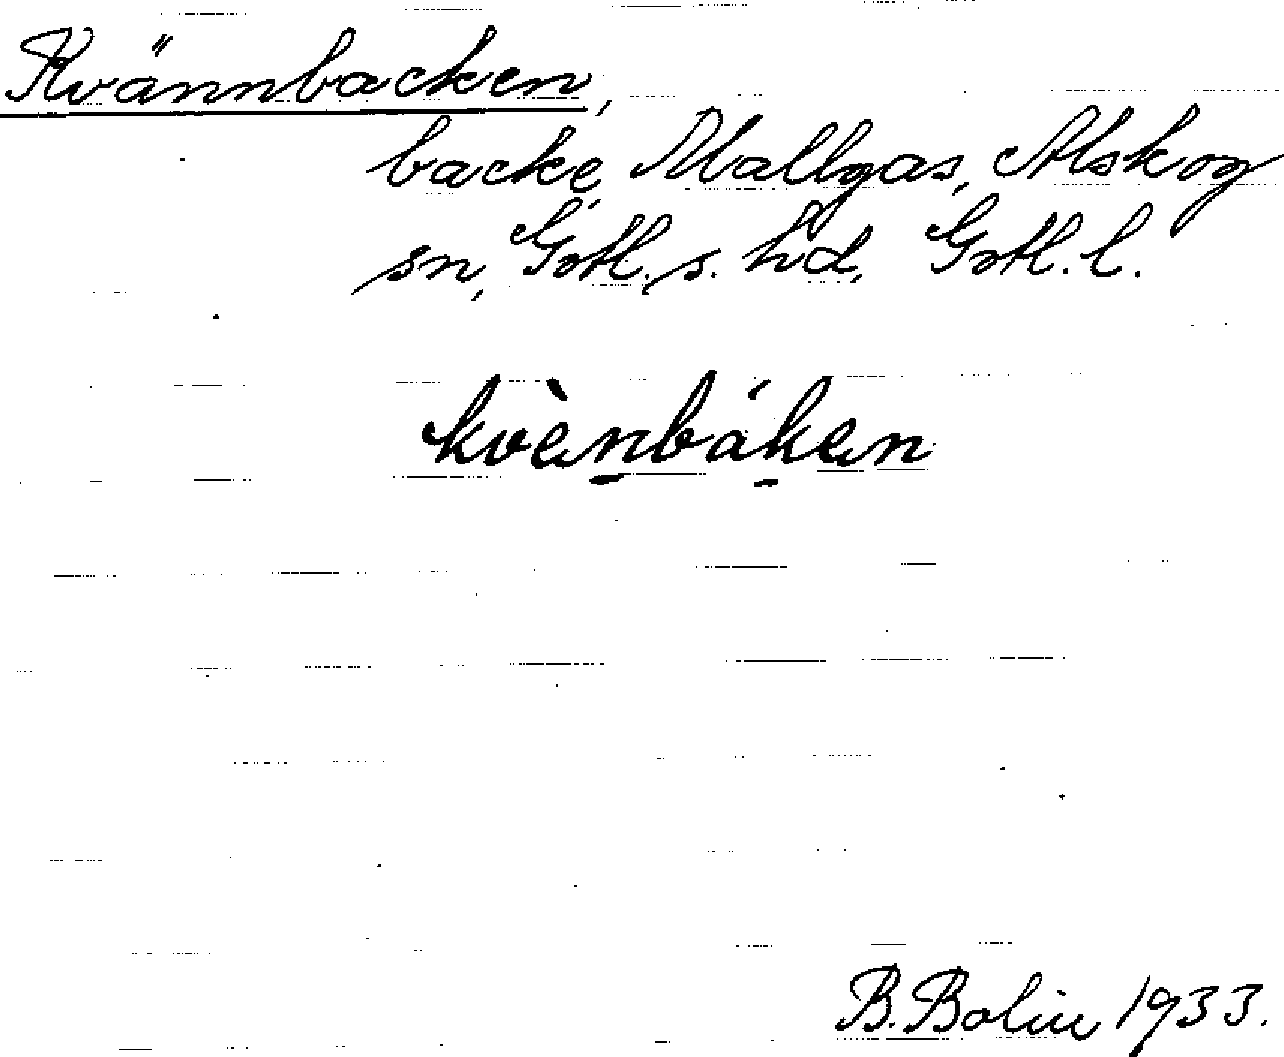 Kvännbacken,
backe, Mallgas, Alskog
sn, Gotl. s. hd, Gotl. l.
kvènbákan
B. Bolin 1933.